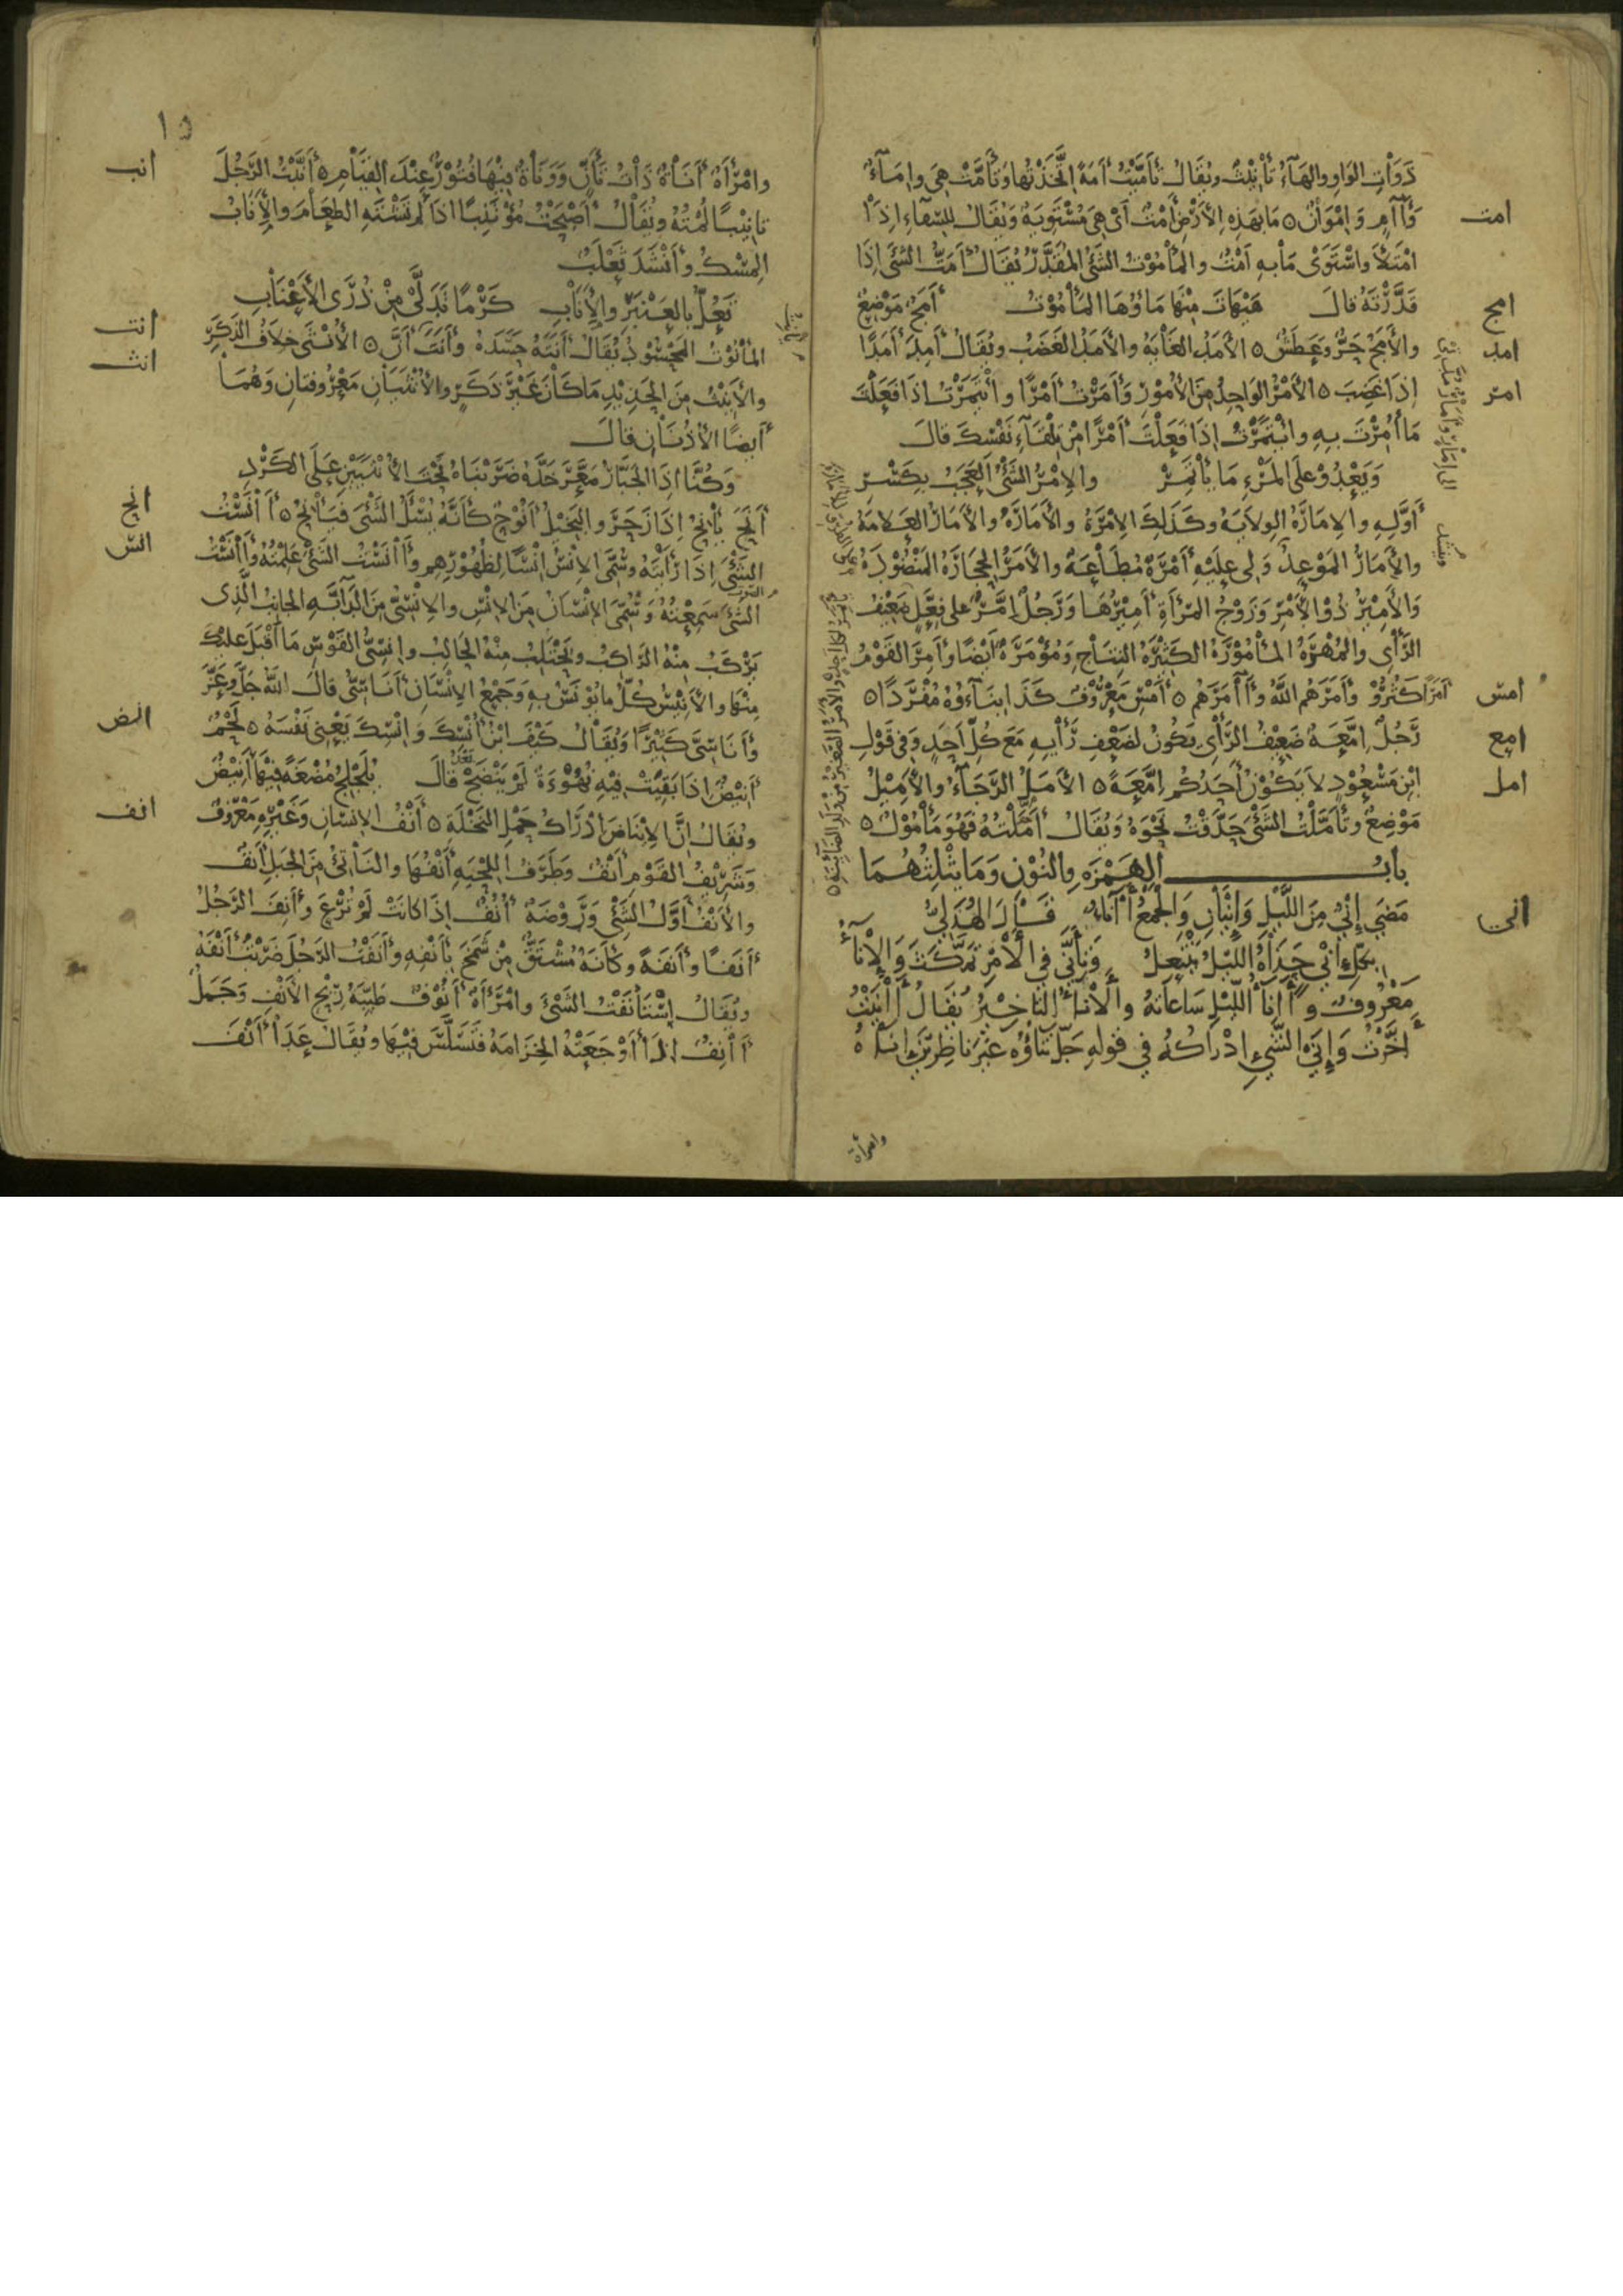 ذوات الواو والهاء تأنيث ويقال تأميت أمة اتخذتها وتأمت هي وإماء
امت
وآآم وإموان ه ما بهذه الأرض أمت أي هي مستوية ويقال للسقاء إذا
امتلأ واستوى ما به أمت والمأموت الشئ المقدر يقال أمت الشئ إذا
امج
قدرته قال هيهات منها ماؤها المأموت أمج موضع
امد
والأمج حر وعطش ه الأمد الغاية والأمد الغضب ويقال أمد أمدا
امر
إذا غضب ه الأمر الواحد من الأمور وأمرت أمرا وأتمرت إذا فعلت
ما أمرت به وائتمرت إذا فعلت أمرا من تلقاء نفسك قال
ويعدو على المرء ما يأتمر والإمر الشئ العجب بكسر
أوله والإمارة الولاية وكذلك الإمرة والأمارة والأمار العلامة
والأمار الموعد ولي عليه أمرة مطاعة والأمر الحجارة المنضودة
والأمير ذو الأمر وزوج المرأة أميرها ورجل إمر على فعل ضعيف
الرأي والمهرة المأمورة الكثيرة النتاج ومؤمرة أيضا وأمر القوم
امس
أمرا كثروا وأمرهم الله وآمرهم ه أمس معروف كذا بناءوه مفردا ه
امع
رجل إمعة ضعيف الرأي يكون لضعف رأيه مع كل أحد وفي قول
امل
ابن مسعود لا يكون أحدكم إمعة ه الأمل الرجاء والأميل
موضع وتأملت الشئ حدقت نحوه ويقال أملته فهو مأمول ه
باب الهمزة والنون وما يثلثهما
انى
مضى إني من الليل وإنيان والجمع آناء قال الهذلي
بكل إني حداه الليل ينتعل وتأني في الأمر تمكث والإناء
معروف وآناء الليل ساعاته والأناء التأخير يقال آنيت
أخرت وإنى الشيء إدراكه في قوله جل ثناؤه غير ناظرين إناه
وامرأة
١٥
انب
وامرأة أناة ذات تأن وونأة فيها فتور عند القيام ه أنبت الرجل
تأنيبا لمته ويقال أصبحت مؤتنبا إذا لم تشته الطعام والأناب
المسك وأنشد ثعلب
تعل بالعنبر والأناب كرما تدلى من ذرى الأعناب
انت
المأنوت المحسود يقال أنته حسده وأنت أن ه الأنثى خلاف الذكر
انث
والأنيث من الحديد ما كان غير ذكر والأنثيان معروفتان وهما
أيضا الأذنان قال
وكنا إذا الجبار صعر خده ضربناه تحت الأنثيين على الكرد
انح
أنح يأنح إذا زحر والبخيل أنوح كأنه يسئل الشئ فيأنح ه آنست
انس
الشئ إذا رأيته وسمي الإنس إنسا لظهورهم وآنست الشئ علمته وآنست
الشئ سمعته وسمي الإنسان من الإنس والإنسي من الدابة الجانب الذي
يركب منه الراكب ويحتلب منه الحالب وإنسي القوس ما أقبل عليك
منها والأنيس كل ما يؤنس به وجمع الإنسان أناسي قال الله جل وعز
انض
وأناسي كثيرا ويقال كيف ابن أنسك وإنسك يعني نفسه ه لحم
أنيض إذا بقيت فيه نهوءة لم ينضج قال يلجلج مضغة فيها أنيض
انف
ويقال إن الإناض إدراك حمل النخلة ه أنف الإنسان وغيره معروف
وشريف القوم أنف وطرف اللحية أنفها والناتئ من الجبل أنف
والأنف أول الشئ وروضة أنف إذا كانت لم ترع وأنف الرجل
أنفا وأنفة وكأنه مشتق من شمخ بأنفه وأنفت الرجل ضربت أنفه
ويقال استأنفت الشئ وامرأة أنوف طيبة ريح الأنف وجمل
آنف إذا أوجعته الخزامة فتسلس فيها ويقال عدا أنف